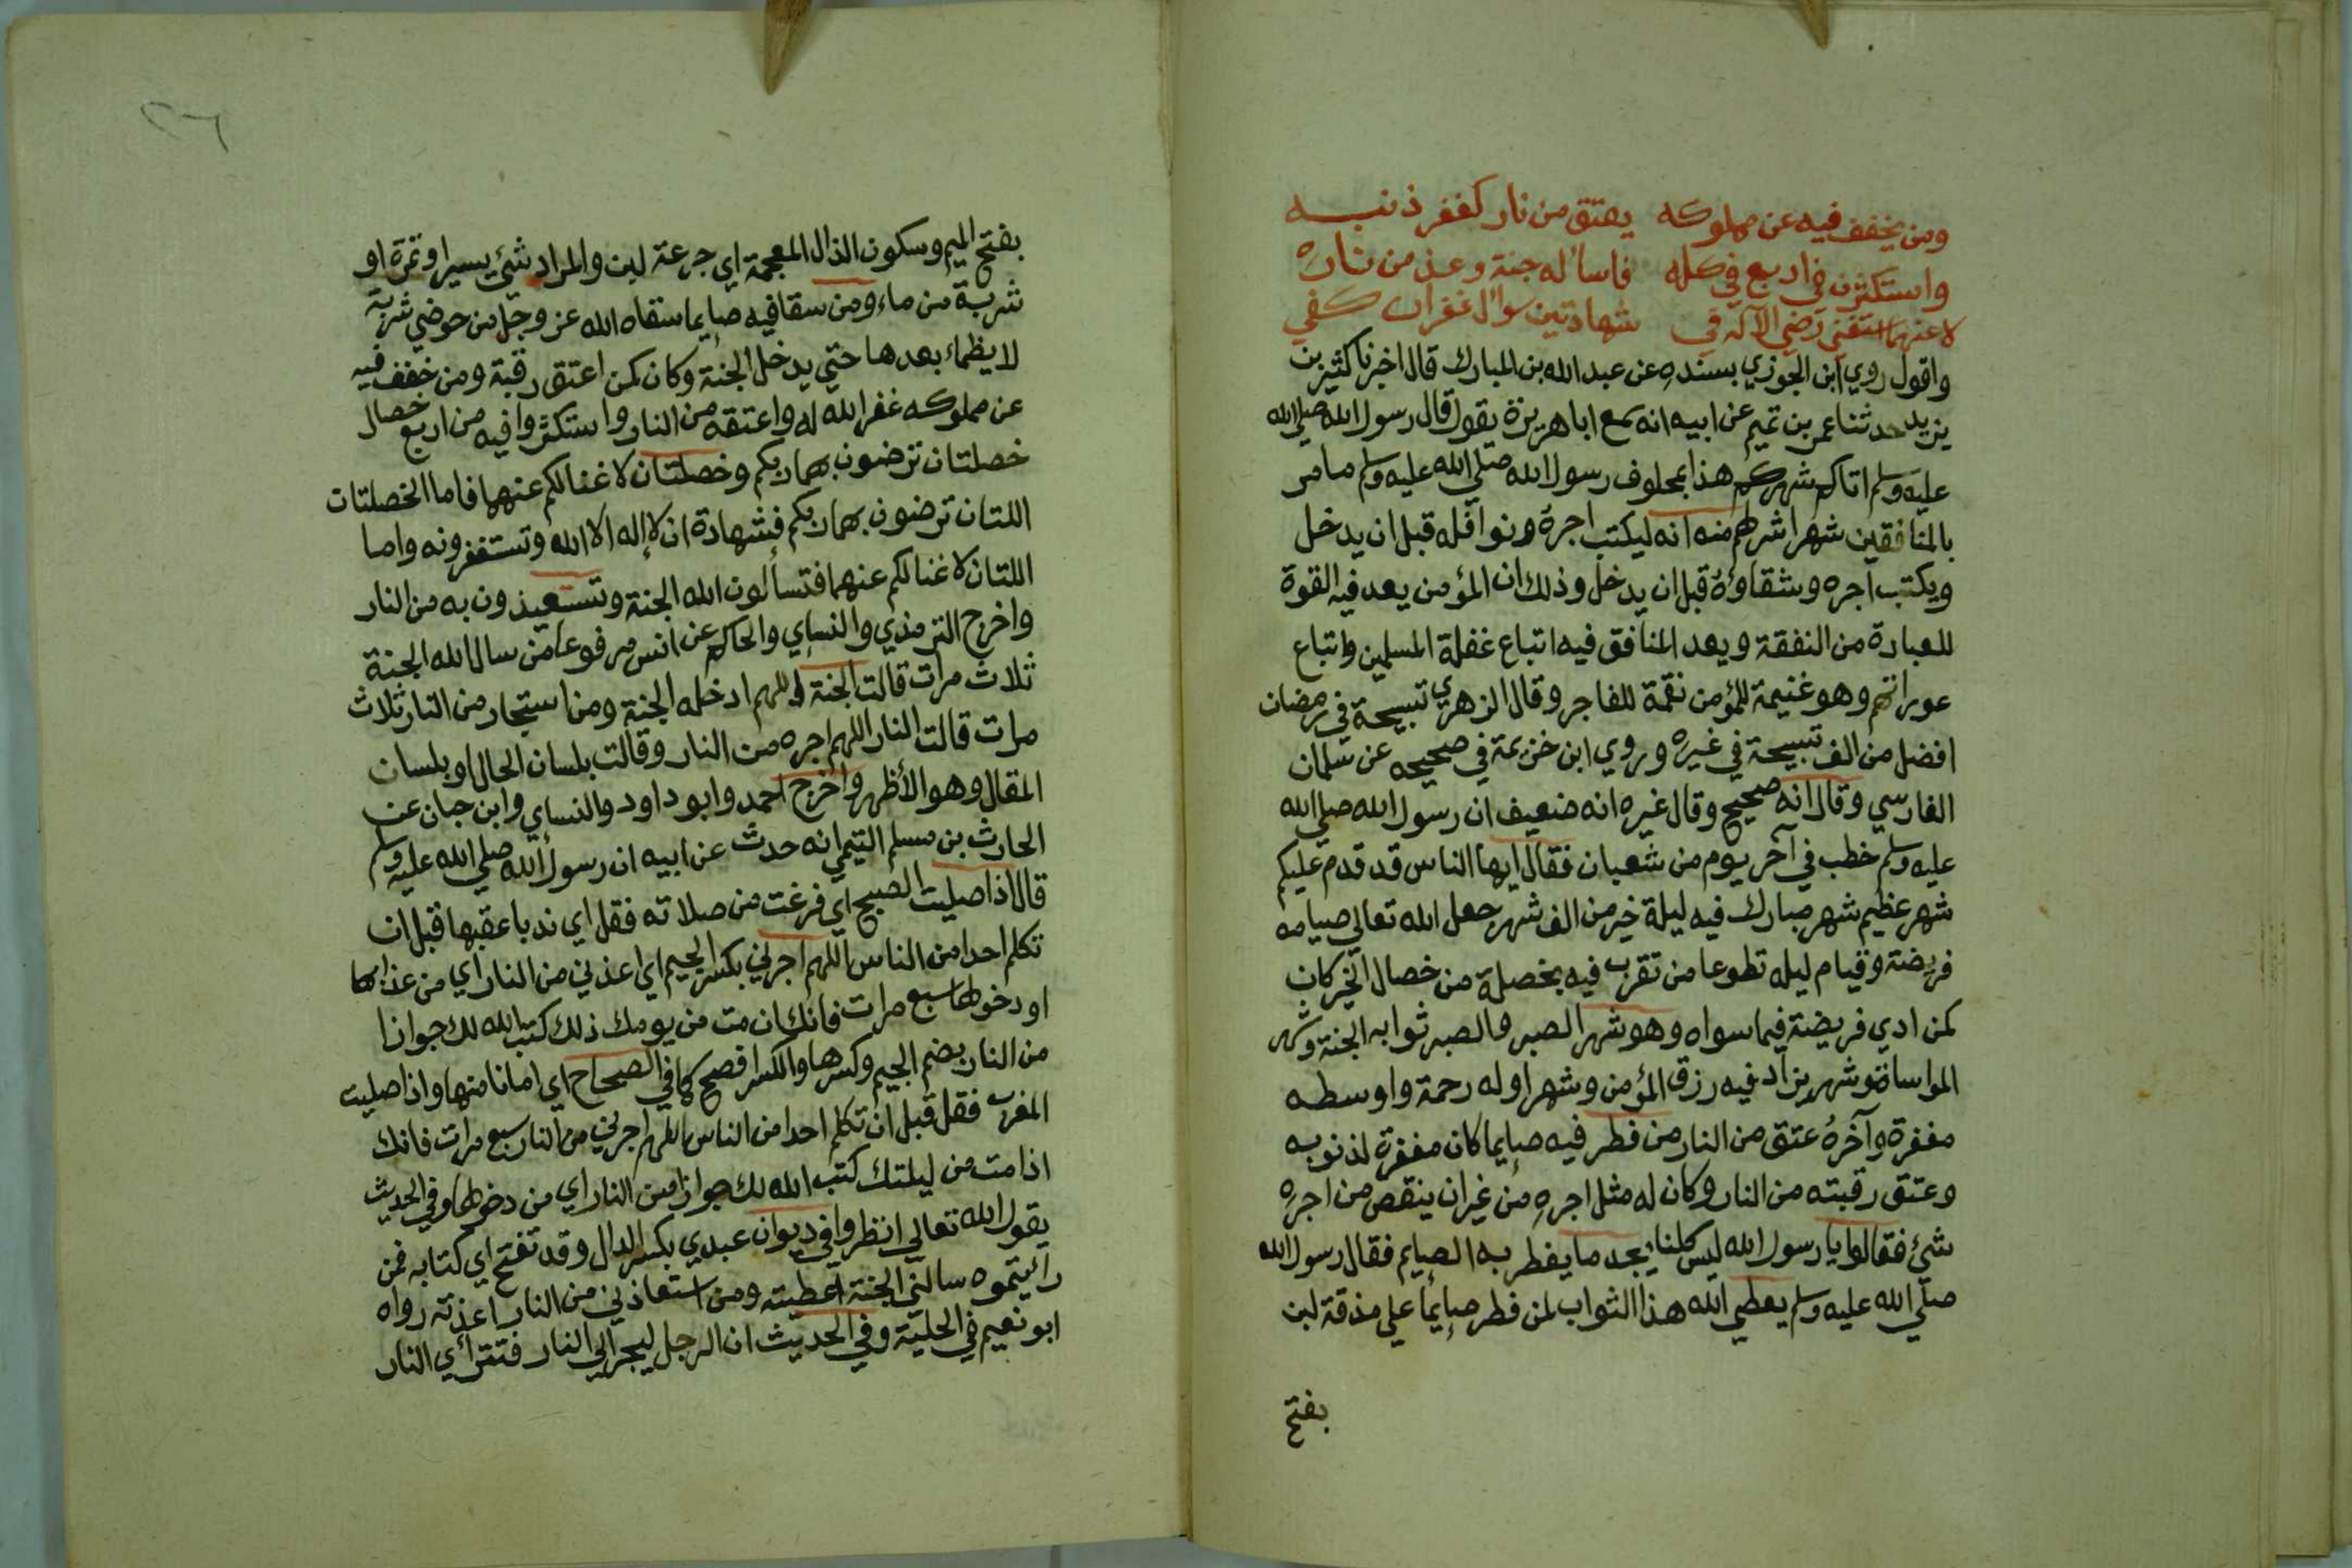 ومن يخفف فيه عن مملوكه يعتق من نار كغفر ذنبه
واستكثرن في اربع في كله فاساله جنة وعذ من ناره
لا عنهما استغني رضي الآله في شهادتين سوال غفران كفي
واقول روي ابن الجوزي بسنده عن عبد الله بن المبارك قال اخبرنا كثير بن
يزيد حدثنا عمر بن تميم عن ابيه انه سمع ابا هريرة يقول قال رسول الله صلي الله
عليه وسلم اتاكم شهركم هذا بمحلوف رسول الله صلي الله عليه وسلم ما مر
بالمنافقين شهرا شر لهم منه انه ليكتب اجره ونوافله قبل ان يدخل
ويكتب اجره وشقاؤه قبل ان يدخل وذلك ان المؤمن يعد فيه القوة
للعبادة من النفقة ويعد المنافق فيه اتباع غفلة المسلمين واتباع
عوراتهم وهو غنيمة للمؤمن نقمة للفاجر وقال الزهري تسبيحة في رمضان
افضل من الف تسبيحة في غيره وروي ابن خزيمة في صحيحه عن سلمان
الفارسي وقال انه صحيح وقال غيره انه ضعيف ان رسول الله صلي الله
عليه وسلم خطب في آخر يوم من شعبان فقال ايها الناس قد قدم عليكم
شهر عظيم شهر مبارك فيه ليلة خير من الف شهر جعل الله تعالي صيامه
فريضة وقيام ليله تطوعا من تقرب فيه بخصلة من خصال الخير كان
كمن ادي فريضة فيما سواه وهو شهر الصبر والصبر ثوابه الجنة وشهر
المواساة وشهر يزاد فيه رزق المؤمن وشهر اوله رحمة واوسطه
مغفرة وآخره عتق من النار من فطر فيه صايما كان مغفرة لذنوبه
وعتق رقبته من النار وكان له مثل اجره من غير ان ينقص من اجره
شئ فقالوا يا رسول الله ليس كلنا يجد ما يفطر به الصايم فقال رسول الله
صلي الله عليه وسلم يعطي الله هذا الثواب لمن فطر صايما علي مذقة لبن
بفتح
٢٦
بفتح الميم وسكون الذال المعجمة اي جرعة لبن والمراد شئ يسير او تمرة او
شربة من ماء ومن سقا فيه صايما سقاه الله عز وجل من حوضي شربة
لا يظماء بعدها حتي يدخل الجنة وكان كمن اعتق رقبة ومن خفف فيه
عن مملوكه غفر الله له واعتقه من النار واستكثروا فيه من اربع خصال
خصلتان ترضون بهما ربكم وخصلتان لا غنا لكم عنهما فاما الخصلتان
اللتان ترضون بهما ربكم فشهادة ان لا إله الا الله وتستغفرونه واما
اللتان لا غنا لكم عنهما فتسألون الله الجنة وتستعيذون به من النار
واخرج الترمذي والنساي والحاكم عن انس مرفوعا من سال الله الجنة
ثلاث مرات قالت الجنة اللهم ادخله الجنة ومن استجار من النار ثلاث
مرات قالت النار اللهم اجره من النار وقالت بلسان الحال او بلسان
المقال وهو الأظهر واخرج احمد وابو داود والنساي وابن حبان عن
الحارث بن مسلم التيمي انه حدث عن ابيه ان رسول الله صلي الله عليه وسلم
قال اذا صليت الصبح اي فرغت من صلاته فقل اي ندبا عقبها قبل ان
تكلم احدا من الناس اللهم اجرني بكسر الجيم اي اعذني من النار اي من عذابها
او دخولها سبع مرات فانك ان مت من يومك ذلك كتب الله لك جوازا
من النار بضم الجيم وكسرها والكسر افصح كما في الصحاح اي امانا منها واذا صليت
المغرب فقل قبل ان تكلم احدا من الناس اللهم اجرني من النار سبع مرات فانك
اذا مت من ليلتك كتب الله لك جوازا من النار اي من دخولها وفي الحديث
يقول الله تعالي انظروا في ديوان عبدي بكسر الدال وقد تفتح اي كتابه فمن
رأيتموه سالني الجنة اعطيته ومن استعاذ بي من النار اعذته رواه
ابو نعيم في الحلية وفي الحديث ان الرجل ليجر الي النار فتترأي النار